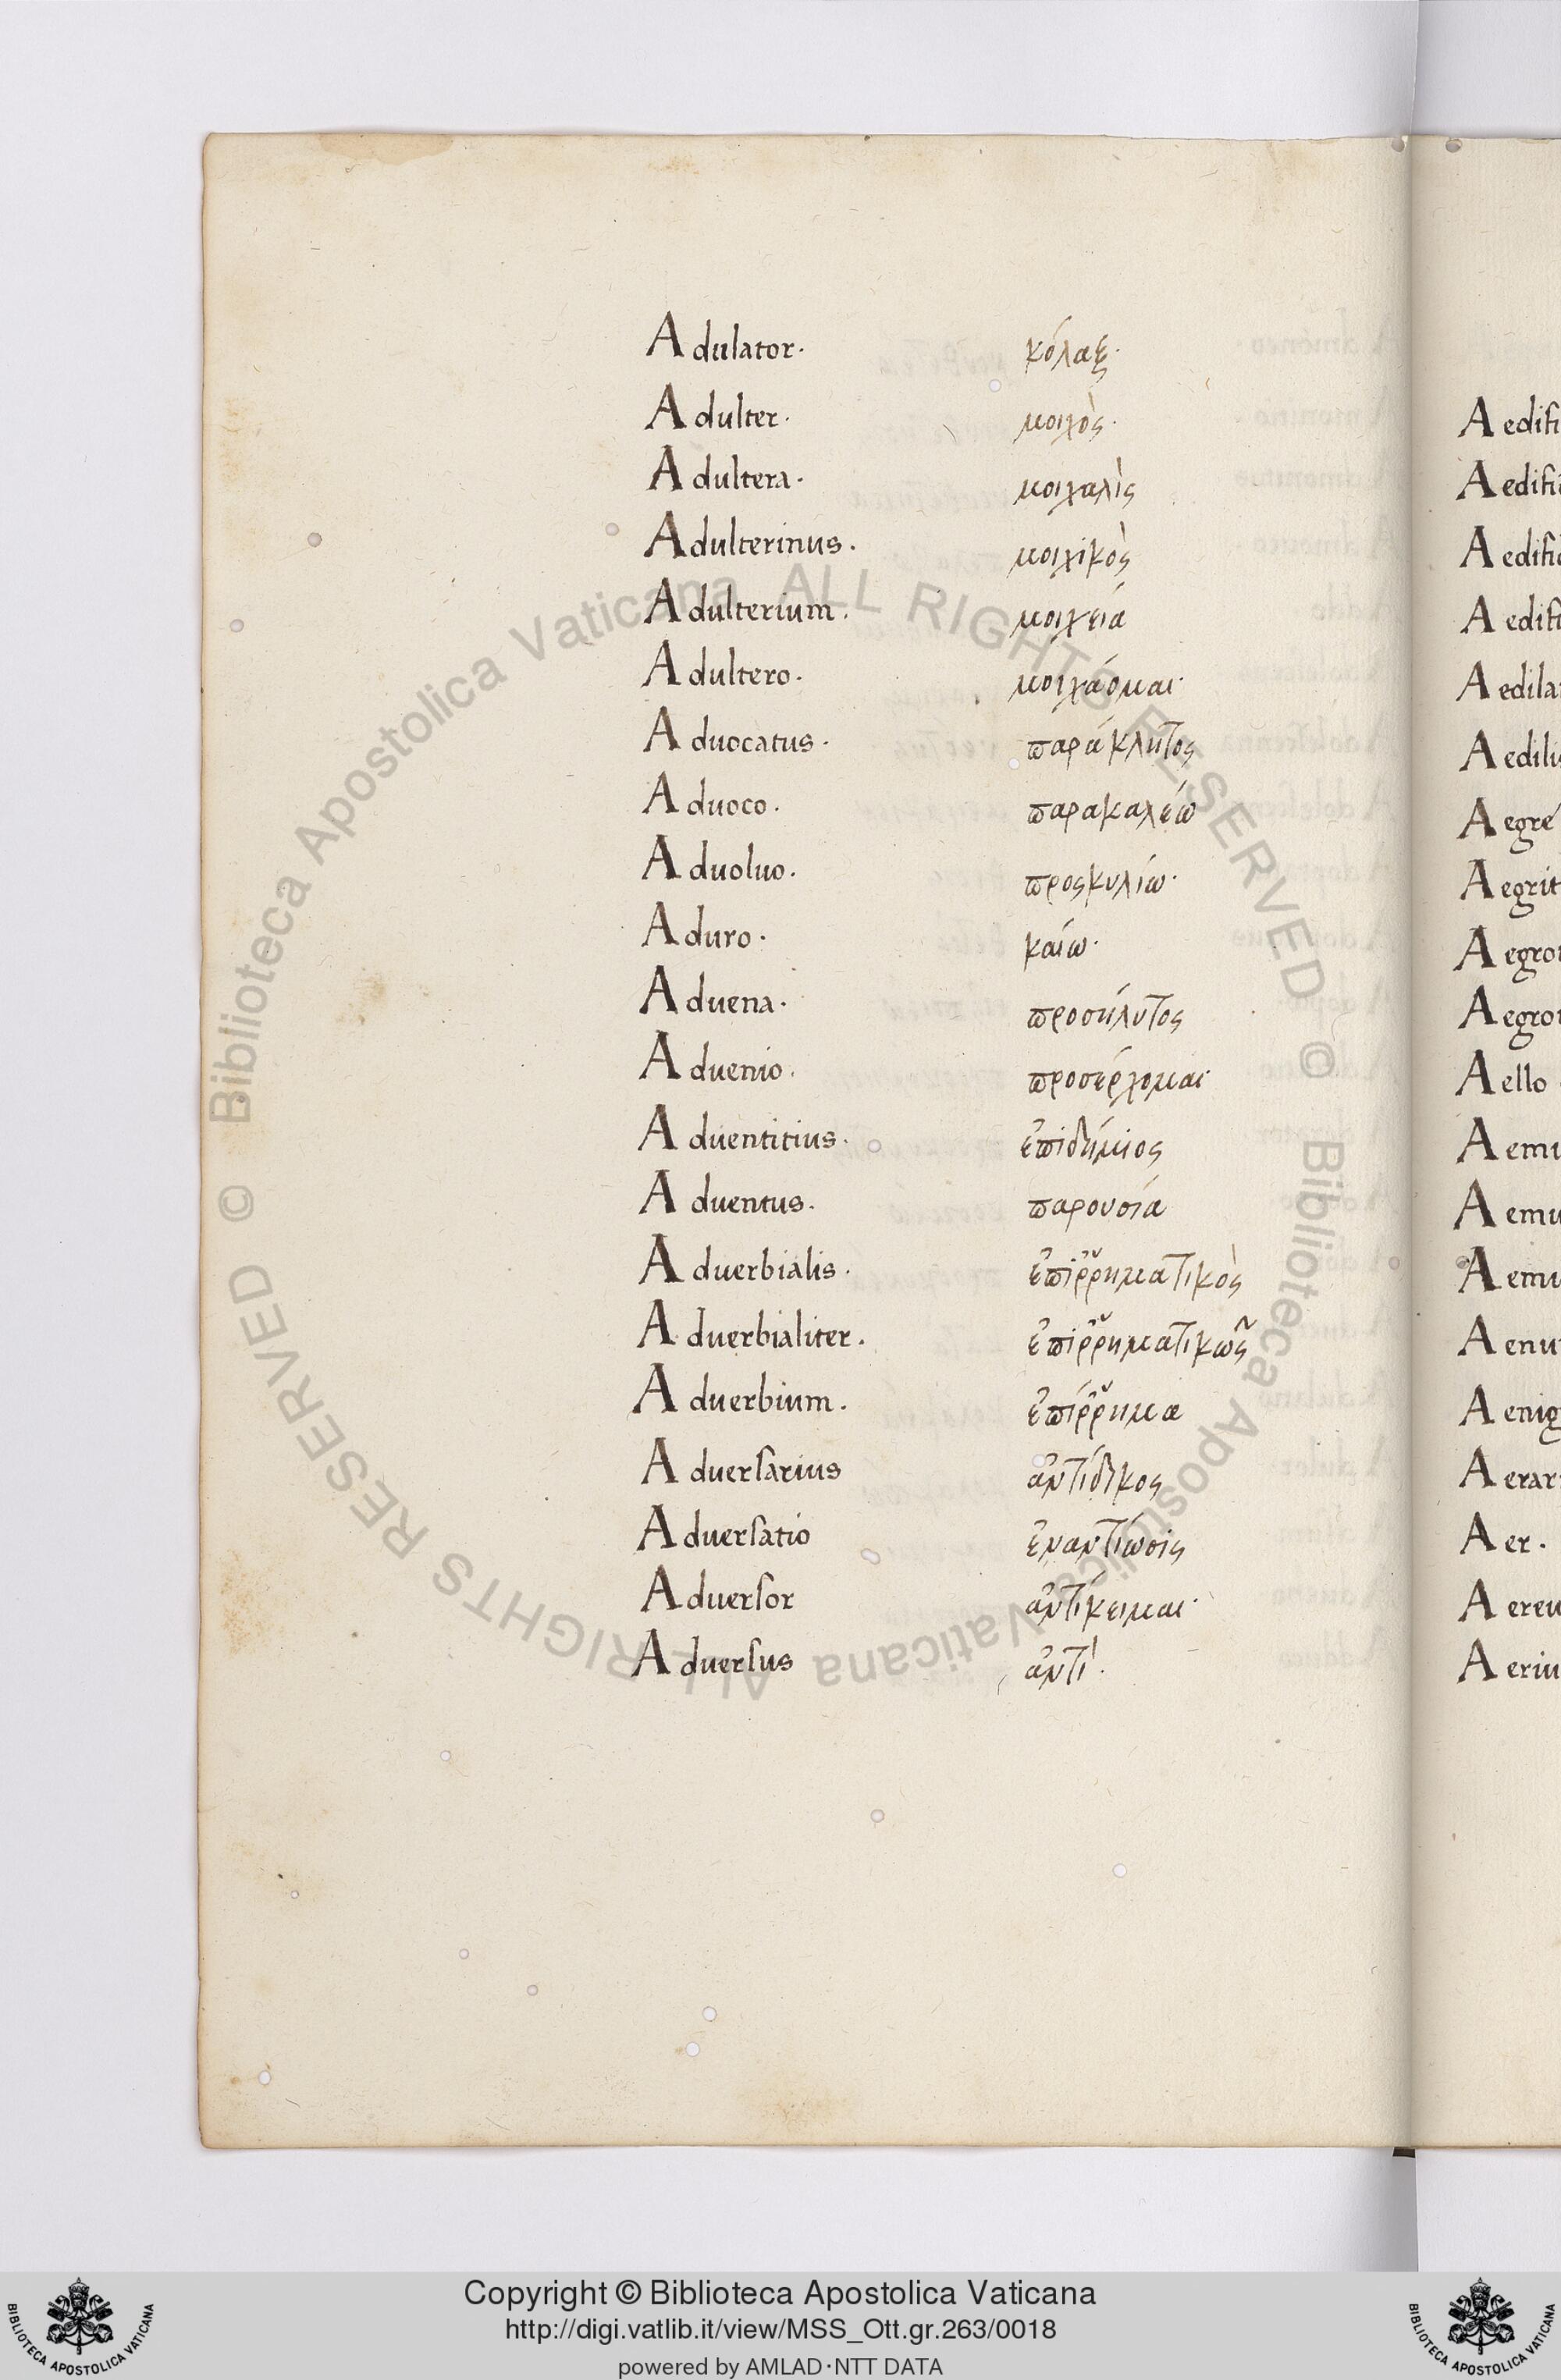 Adulator. κόλαξ.
Adulter. μοιχὸς.
Adultera. μοιχαλὶς
Adulterinus. μοιχικὸς
Adulterium. μοιχειά
Adultero. μοιχάομαι.
Aduocatus. παράκλητος
Aduoco. παρακαλέω
Aduoluo. προςκυλίω.
Aduro. καίω.
Aduena. προσήλυτος
Aduenio. προσέρχομαι.
Aduentitius. ἐπιδήμιος
Aduentus. παρουσία
Aduerbialis. ἐπιῤῥηματικὸς
Aduerbialiter. ἐπιῤῥηματικῶς
Aduerbium. ἐπίῤῥημα
Aduerſarius ἀντίδικος
Aduerſatio ἐναντίωσις
Aduerſor ἀντίκειμαι.
Aduerſus ἀντὶ.
Aedifi
Aedifi
Aedifi
Aedifi
Aedila
Aedilis
Aegre
Aegrit
Aegro
Aegrot
Aello
Aemu
Aemu
Aemu
Aenu
Aenig
Aerar
Aer.
Aereu
Aeriu
© Biblioteca Apostolica Vaticana ALL RIGHTS RESERVED © Biblioteca Apostolica Vaticana ALL RIGHTS RESERVED
Copyright © Biblioteca Apostolica Vaticana
http://digi.vatlib.it/view/MSS_Ott.gr.263/0018
powered by AMLAD·NTT DATA
BIBLIOTECA APOSTOLICA VATICANA
BIBLIOTECA APOSTOLICA VATICANA